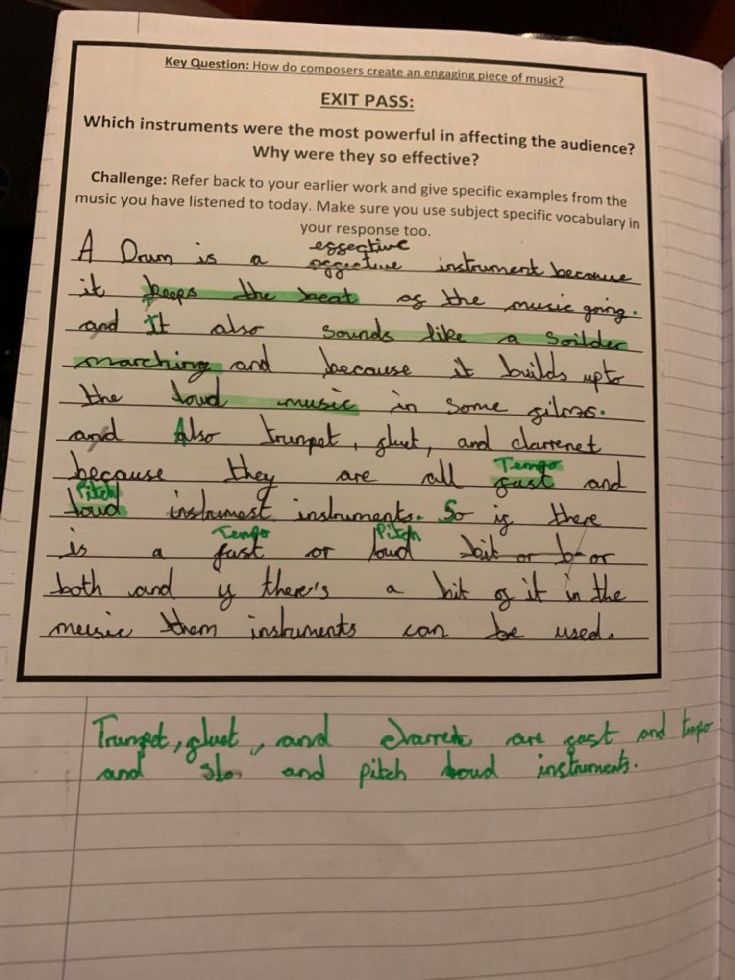 Key Question: How do composers create an engaging piece of music?
EXIT PASS:
Which instruments were the most powerful in affecting the audience?
Why were they so effective?
Challenge: Refer back to your earlier work and give specific examples from the
music you have listened to today. Make sure you use subject specific vocabulary in
your response too.
essective
A Drum is a oggective instrument because
it keeps the beat of the music going.
and It also sounds like a soilder
marching and because it builds upto
the loud music in some films.
and Also trunpet, fluet, and clarrenet
Tempo
because they are all fast and
Pitch
loud instrumest instruments. So if there
Tempo Pitch
is a fast or loud bit or b or
both and if there's a bit of it in the
meusic them instruments can be used.
Trumpet, fluet, and are fast and tempo
and slo and pitch loud instruments.